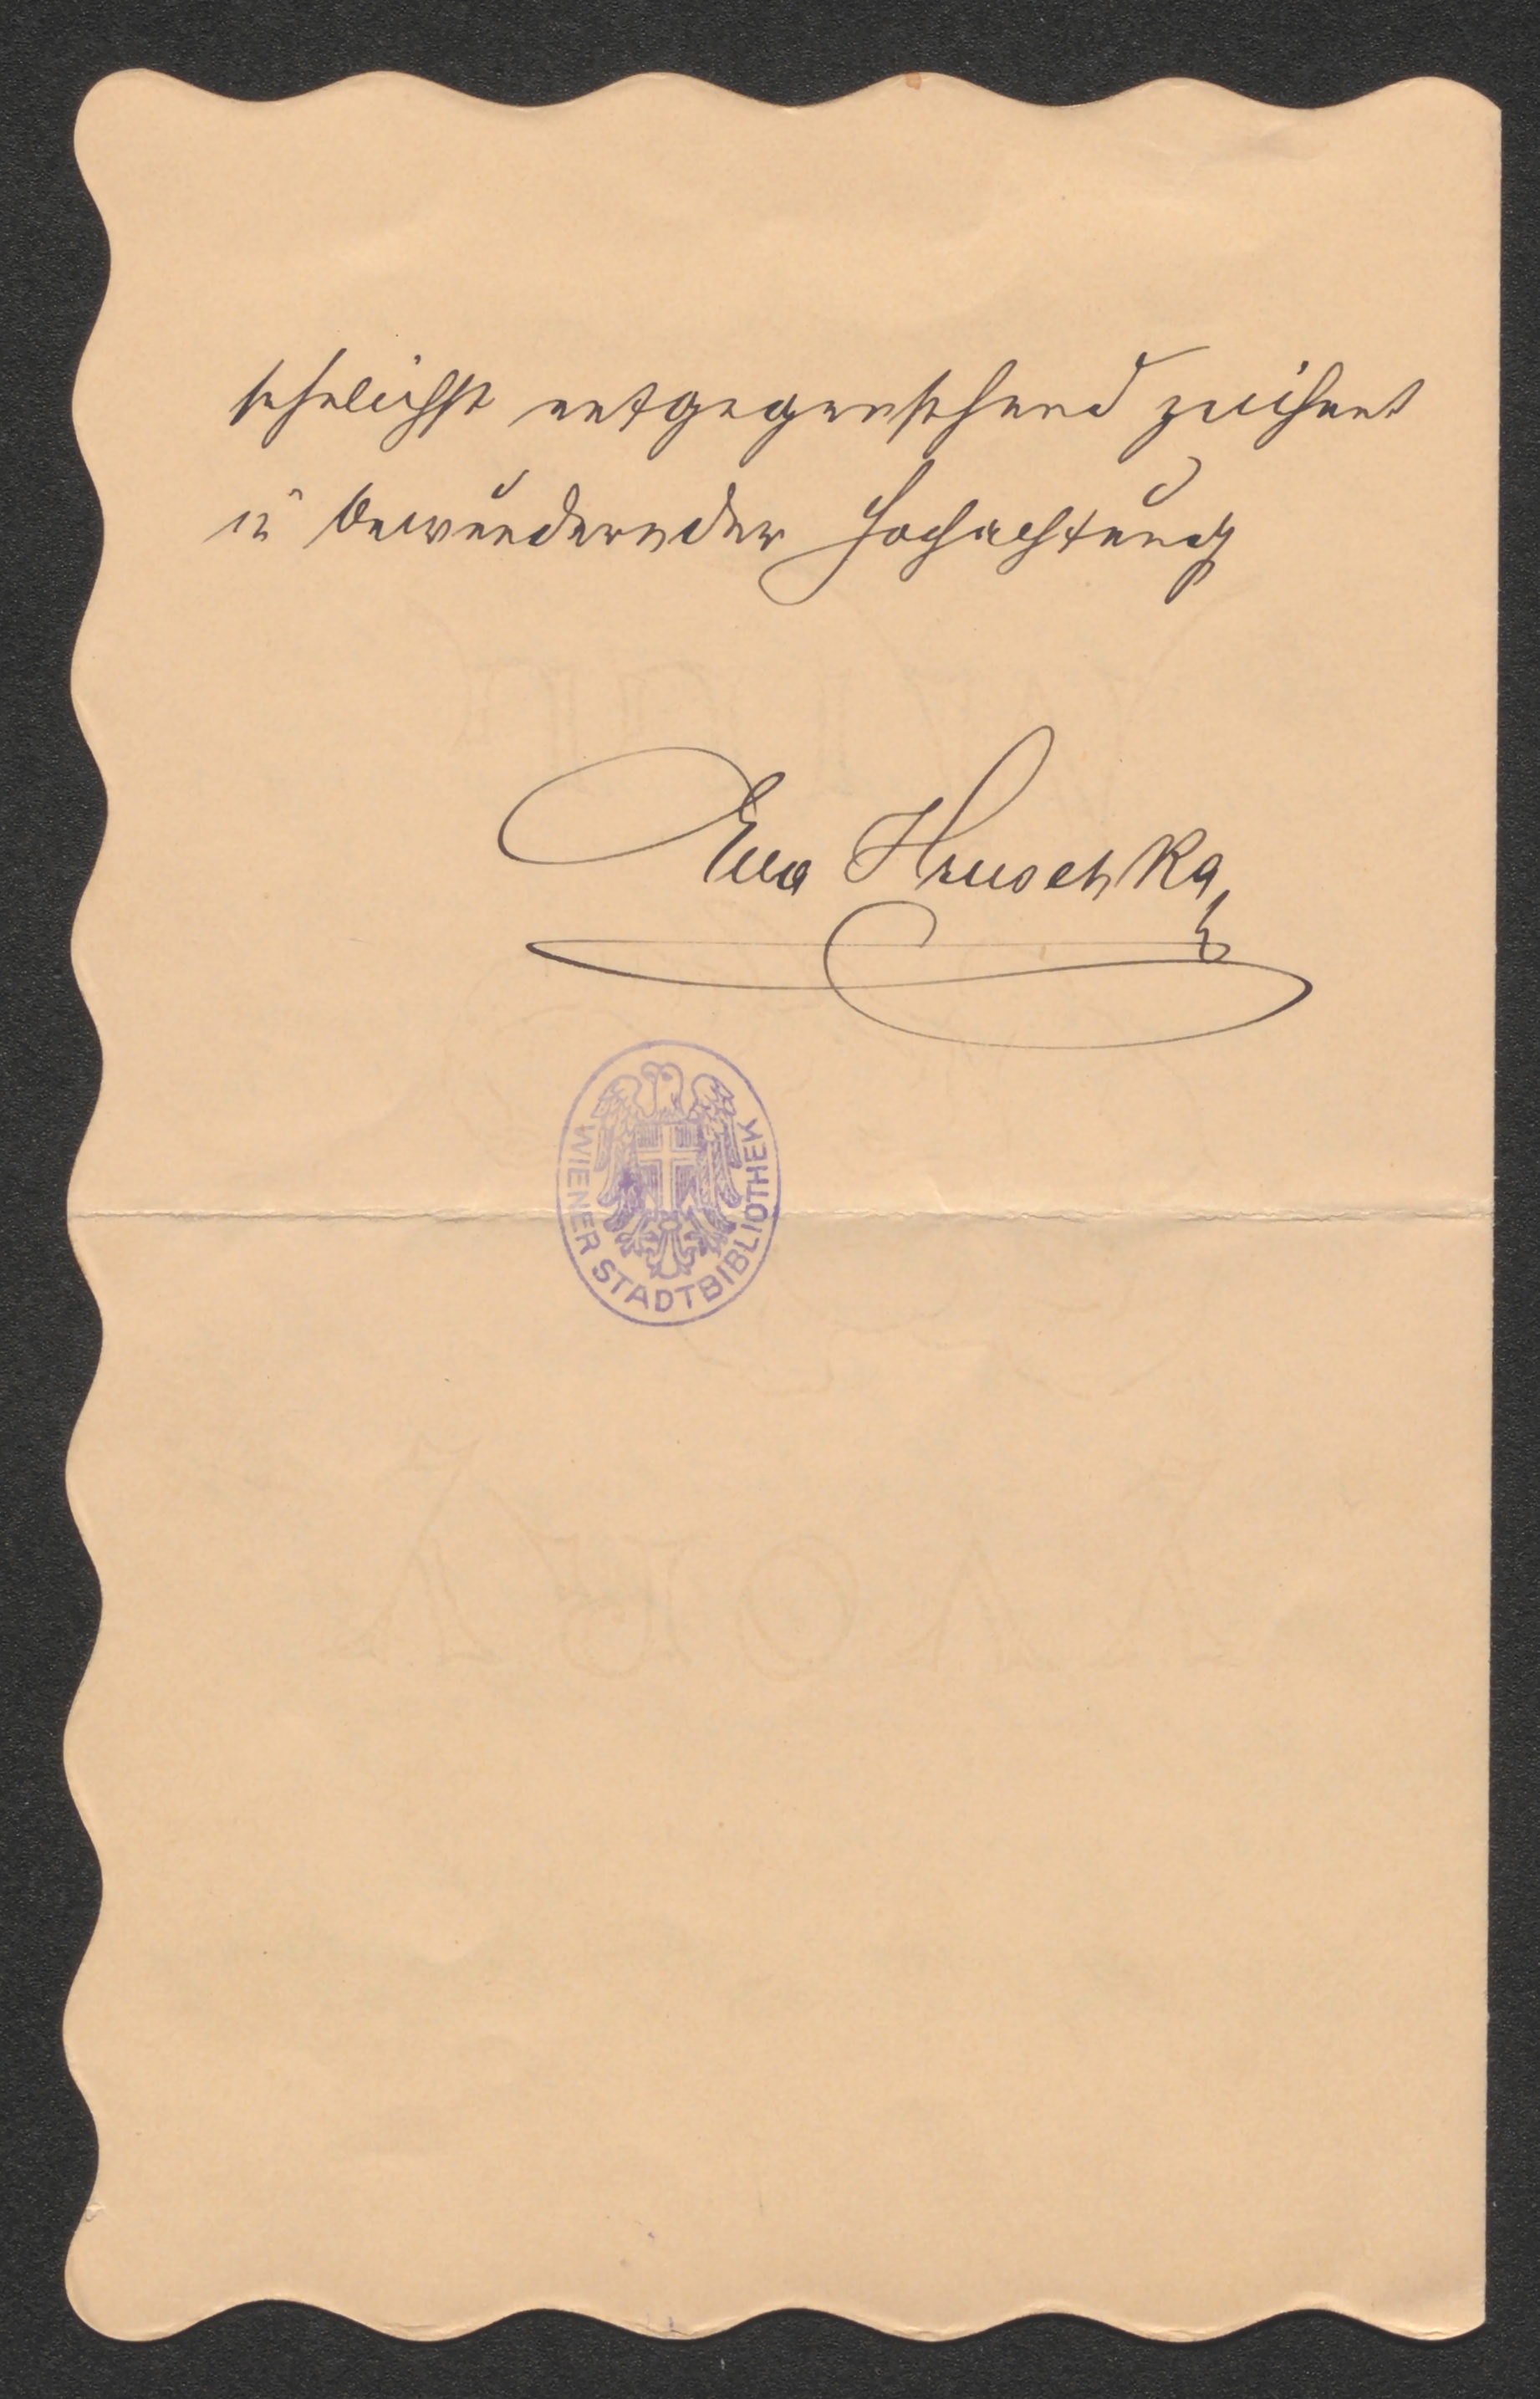 sehnlichst entgegensehend zeichnet
in bewundernder Hochachtung
Ella Hruschka
WIENER STADTBIBLIOTHEK